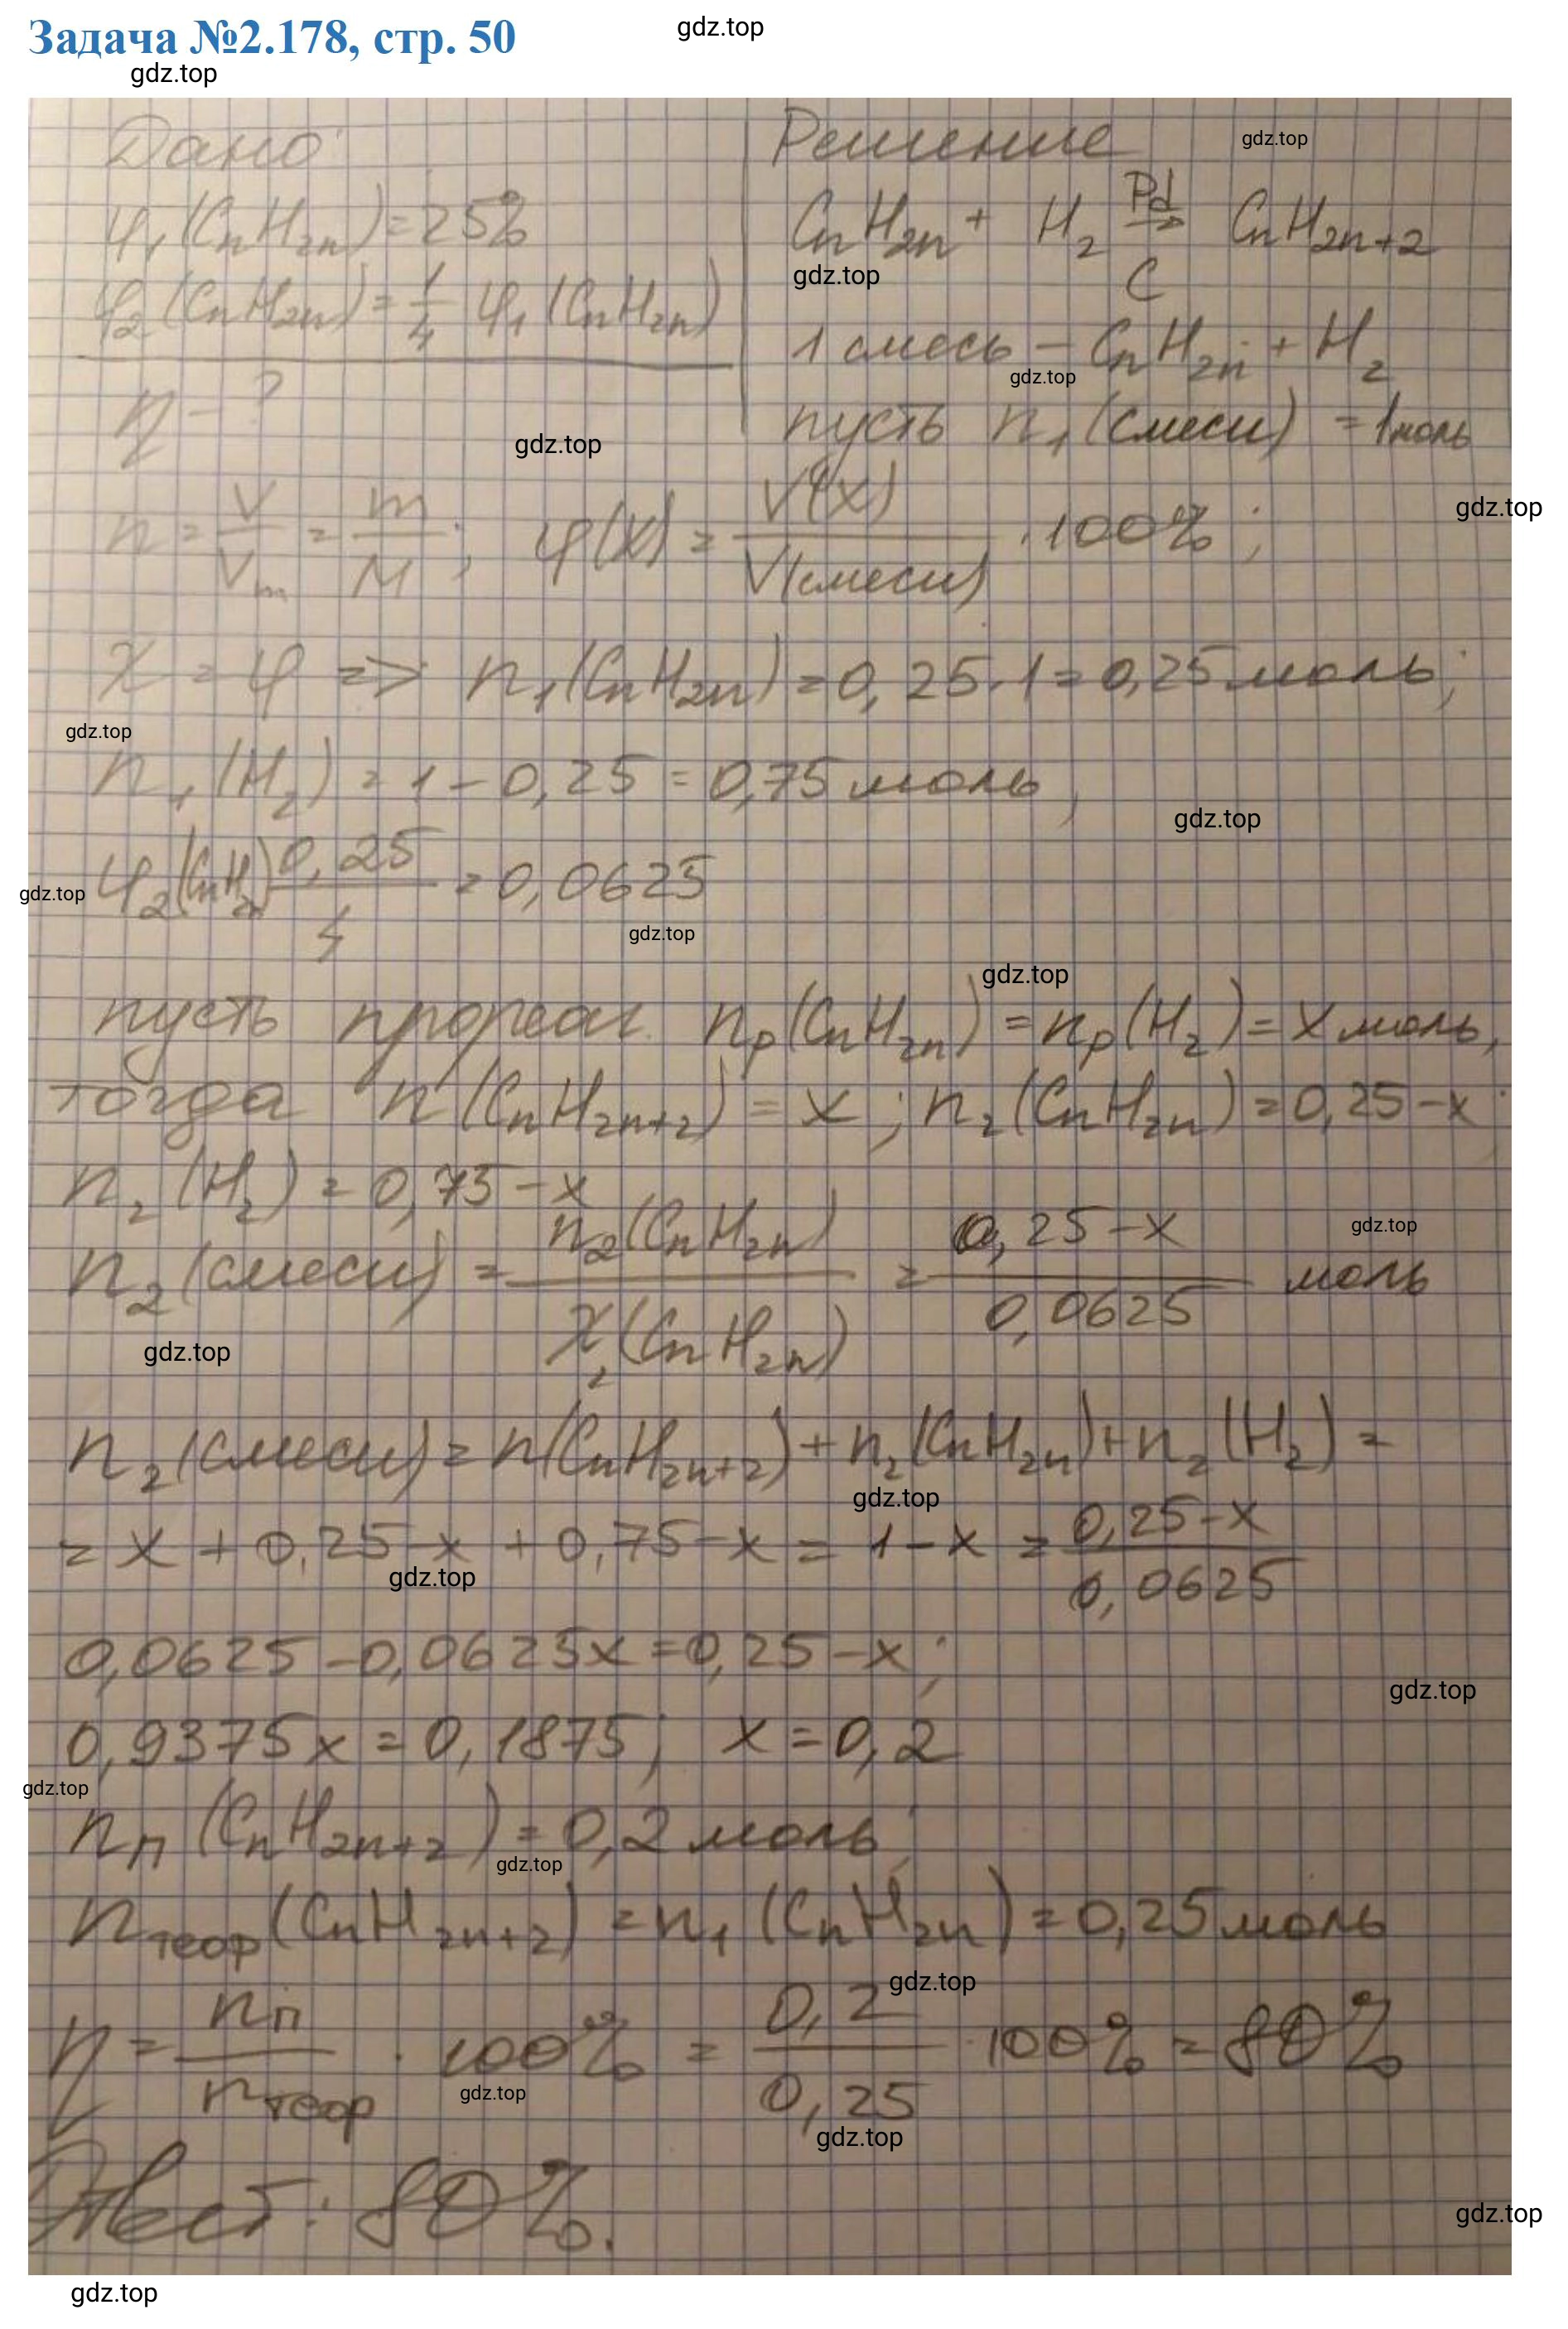 Задача №2.178, стр. 50
gdz.top
gdz.top
Дано:
Решение
gdz.top
φ₁(CnH₂n)=25%
CnH₂n + H₂ Pd→C CnH₂n+2
gdz.top
φ₂(CnH₂n)=1/4 φ₁(CnH₂n)
1 смесь – CnH₂n + H₂
gdz.top
η – ?
пусть n₁(смеси) = 1 моль
gdz.top
n = V/Vm = m/M; φ(X) = V(X)/V(смеси) · 100%;
gdz.top
χ = φ => n₁(CnH₂n)=0,25·1=0,25 моль;
gdz.top
n₁(H₂) = 1 – 0,25 = 0,75 моль,
gdz.top
φ₂(CnH₂n) 0,25/4 = 0,0625
gdz.top
gdz.top
gdz.top
пусть прореаг. nр(CnH₂n) = nр(H₂) = x моль,
тогда n(CnH₂n+2) = x; n₂(CnH₂n) = 0,25–x;
n₂(H₂) = 0,75–x
gdz.top
n₂(смеси) = n₂(CnH₂n)/χ₂(CnH₂n) = 0,25–x/0,0625 моль
gdz.top
n₂(смеси) = n(CnH₂n+2)+n₂(CnH₂n)+n₂(H₂) =
gdz.top
= x + 0,25–x + 0,75–x = 1–x = 0,25–x/0,0625
gdz.top
0,0625–0,0625x=0,25–x;
gdz.top
0,9375x = 0,1875; x = 0,2
gdz.top
nп(CnH₂n+2) = 0,2 моль;
gdz.top
nтеор(CnH₂n+2) = n₁(CnH₂n) = 0,25 моль
gdz.top
η = nп/nтеор · 100% = 0,2/0,25 · 100% = 80%
gdz.top
gdz.top
Ответ: 80%.
gdz.top
gdz.top